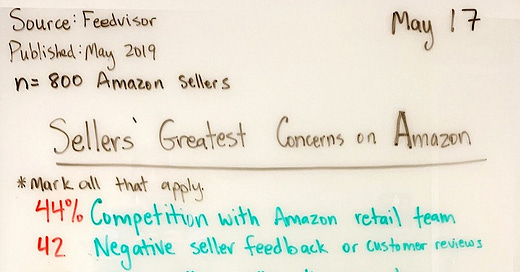 Source: Feedvisor
May 17
Published: May 2019
n= 800 Amazon Sellers
Sellers' Greatest Concerns on Amazon
*Mark all that apply.
44% Competition with Amazon retail team
42 Negative seller feedback or customer reviews